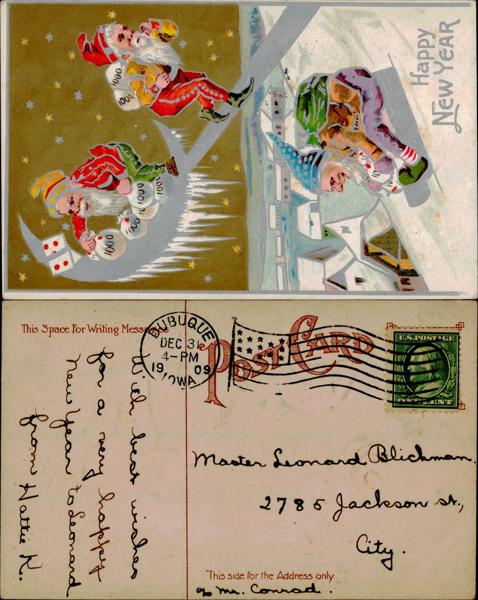 Happy
New Year
1000
1000
1000
1000
1000
1000
This Space For Writing Messages
POST CARD
DUBUQUE
DEC 31
4-PM
1909
IOWA
U.S. POSTAGE
With best wishes
for a very happy
New Year to Leonard
from Hattie K.
Master Leonard Blickman.
2785 Jackson st.,
City.
This side for the Address only
c/o Mr. Conrad.